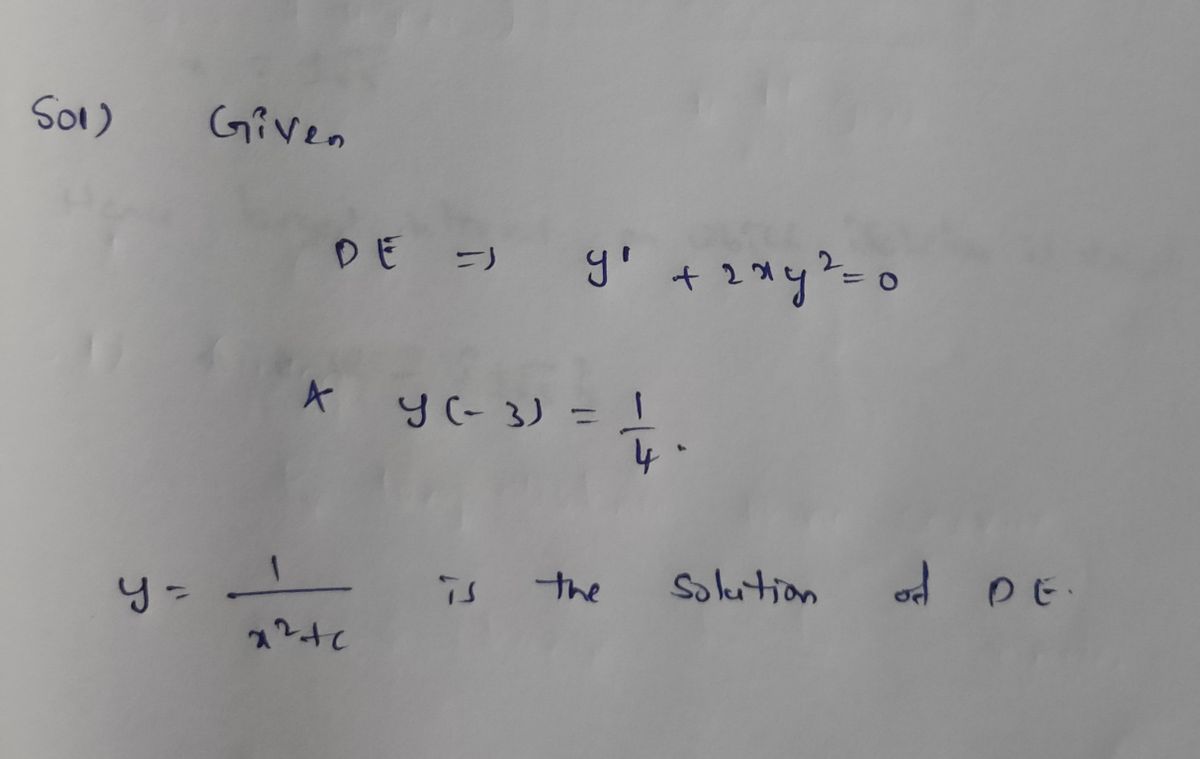 Sol) Given
DE => y' + 2xy²=0
y(-3) = 1/4.
y = 1/(x²+c) is the solution of DE.